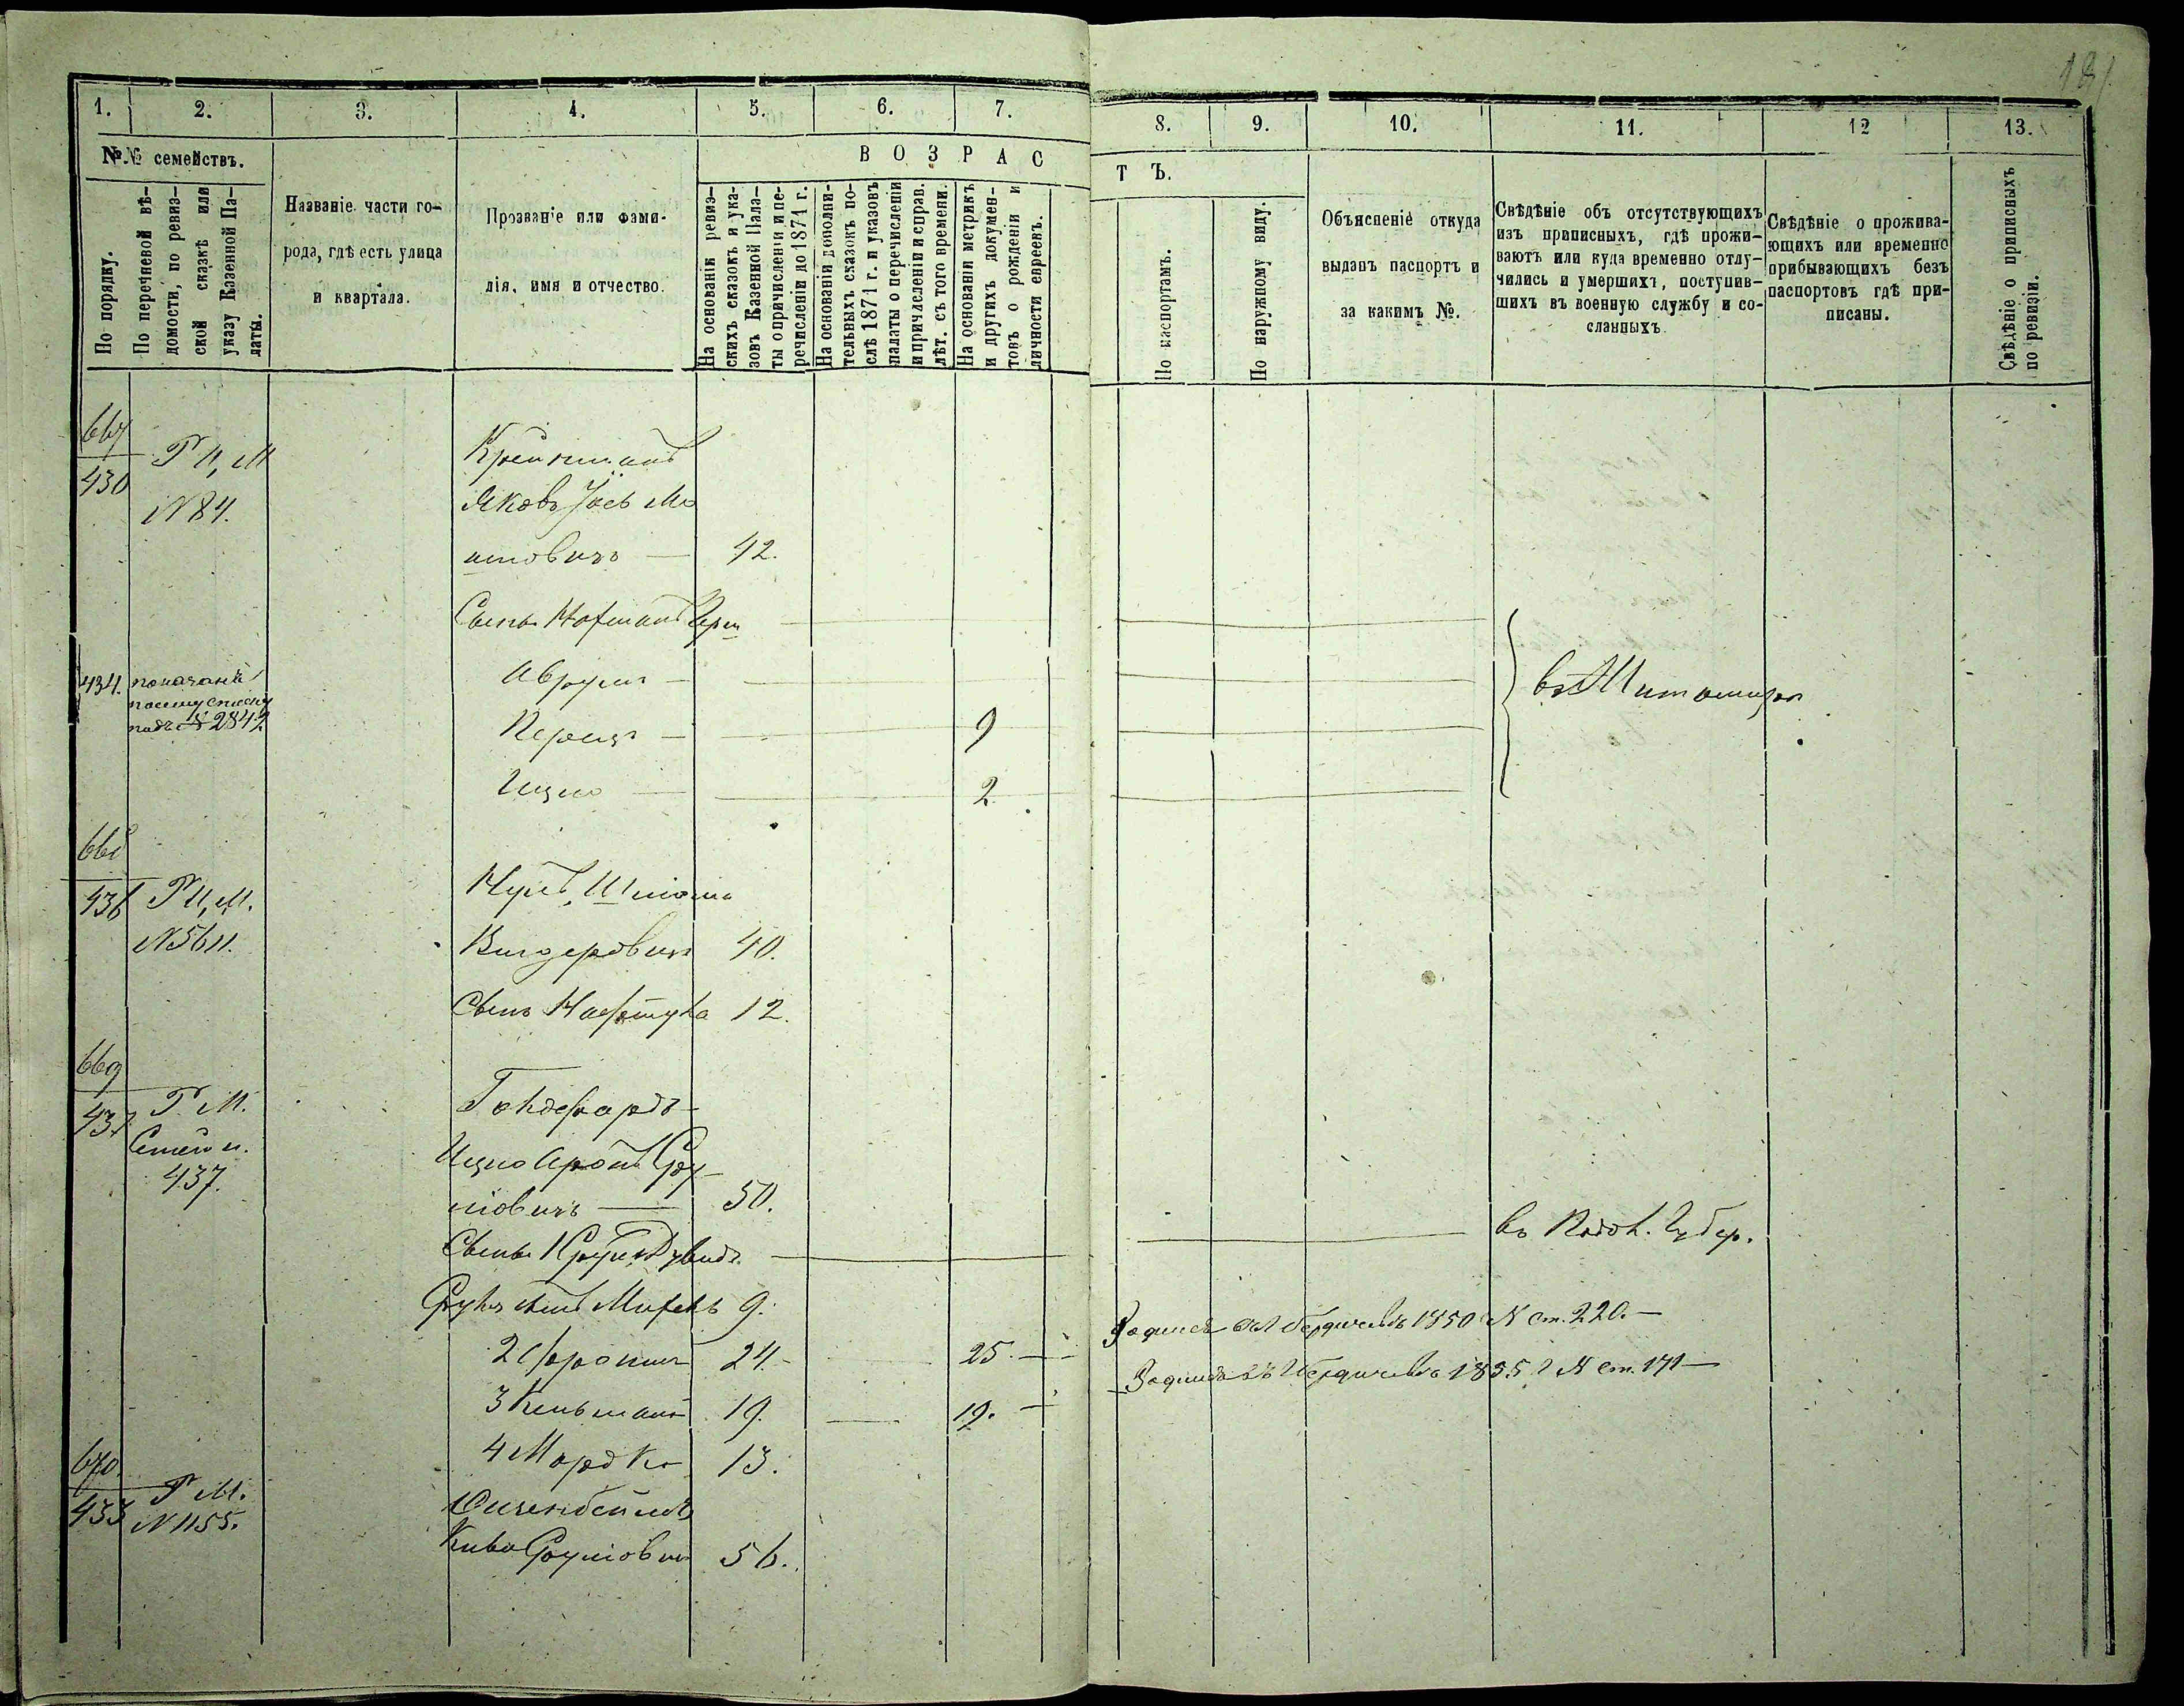 181
1. 2. 3. 4. 5. 6. 7. 8. 9. 10. 11. 12 13.
№.№ семействъ.
По порядку.
По перечневой вѣ-
домости, по ревиз-
ской сказкѣ или
указу Казенной Па-
латы.
Названіе части го-
рода, гдѣ есть улица
и квартала.
Прозваніе или фами-
лія, имя и отчество.
ВОЗРАСТЪ.
На основаніи ревиз-
скихъ сказокъ и ука-
зовъ Казенной Пала-
ты о причисленіи и пе-
речисленіи до 1871 г.
На основаніи дополни-
тельныхъ сказокъ по-
слѣ 1871 г. и указовъ
палаты о перечисленіи
и причисленіи и справ.
лѣт. съ того времени.
На основаніи метрикъ
и другихъ докумен-
товъ о рожденіи и
личности евреевъ.
По паспортамъ.
По наружному виду.
Объясненіе откуда
выданъ паспортъ и
за какимъ №.
Свѣдѣніе объ отсутствующихъ
изъ приписныхъ, гдѣ прожи-
ваютъ или куда временно отлу-
чились и умершихъ, поступив-
шихъ въ военную службу и со-
сланныхъ
Свѣдѣніе о прожива-
ющихъ или временно
прибывающихъ безъ
паспортовъ гдѣ при-
писаны.
Свѣдѣніе о приписныхъ
по ревизіи.
667
430
N 84.
Яковъ Іось Мо
шковичъ — 42.
Аврумъ —
434. показанъ
посему списку
подъ № 2842
въ Житомирѣ
Перецъ — 9
Ицко — 2
668
436
N 5611.
Шлёма
40.
Сынъ 12.
669
437
Р М.
Семей н.
437.
Ицко Аронъ Сру
лювичъ — 50.
въ Подол. Губер.
9.
24. 25.
Бердичевѣ 1850 N ст. 220. —
3 Кельманъ 19. 19.
Бердичевѣ 1855 г N ст. 171 —
4 Мордко 13.
670
433
Р М.
N 1155.
Кива Срулёвичъ 56.